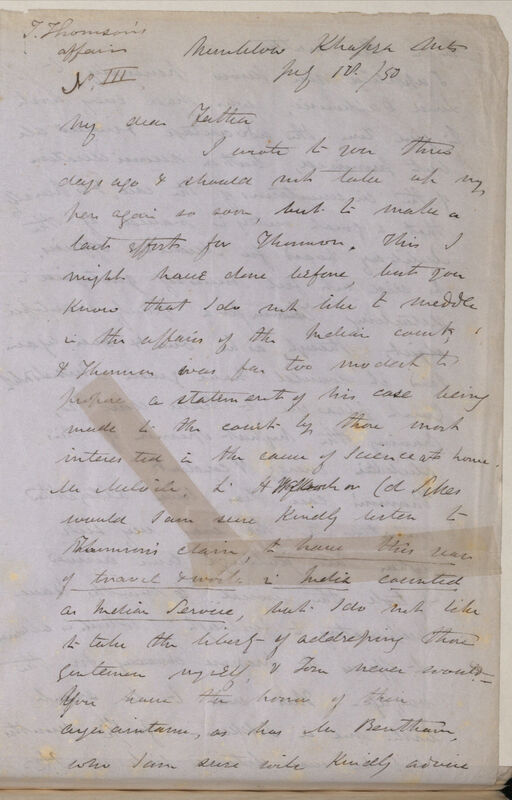 T. Thomson's
affairs
No. III
Khapra
July 18. /50
My dear Father
I wrote to you three
days ago & should not take up my
pen again so soon, but to make a
last effort for Thomson. This I
might have done before, but you
know that I do not like to meddle
in the affairs of the Indian court,
& Thomson was far too modest to
propose a statement of his case being
made to the court by those most
interested in the cause of Science at home.
Mr Melvile, Col Sykes
would I am sure kindly listen to
Thomson's claim, to have this year
of travel & work in India counted
as Indian Service, but I do not like
to take the liberty of addressing those
gentlemen myself, & Tom never would.
You have the honor of their
acquaintance, as has Mr Bentham,
who I am sure will kindly advise